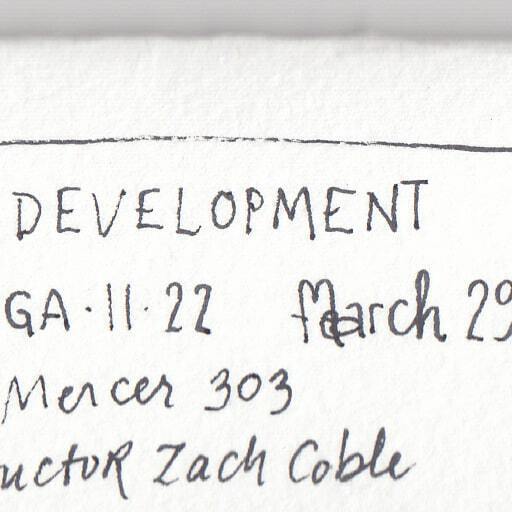 DEVELOPMENT
GA·11·22 March 29
Mercer 303
uctoR Zach Coble